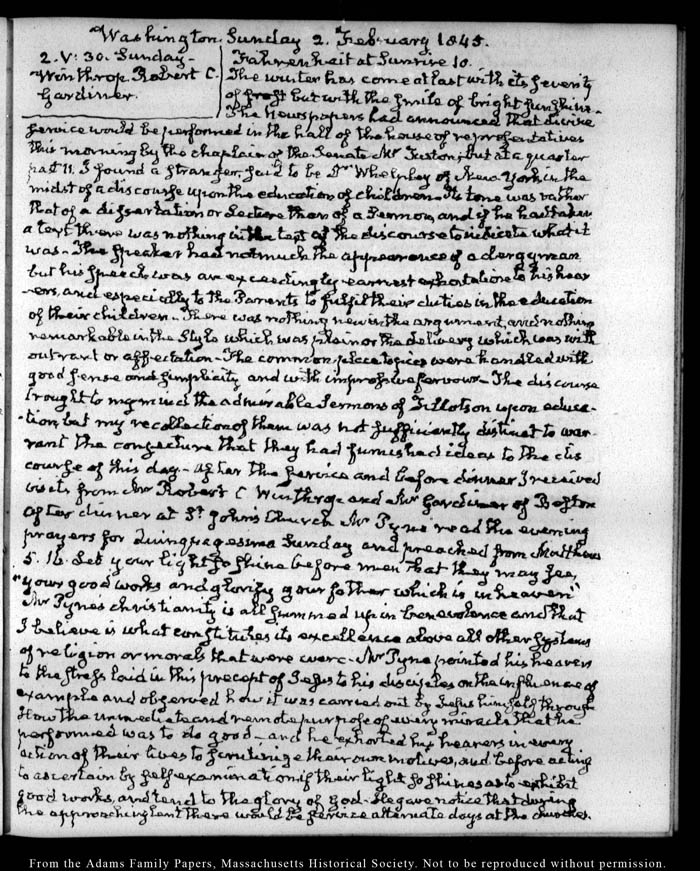 Washington Sunday 2. February 1845.
2. V: 30. Sunday-
Winthrop Robert C.
Gardiner.
Fahrenheit at Sunrise 10.
The winter has come at last with its severity
of frost but with the smile of bright sunshine-
The Newspapers had announced that divine
service would be performed in the hall of the house of representatives
this morning by the chaplain of the Senate Mr Tuston; but at a quarter
past 11. I found a stranger, said to be Dr Whelpley of New-York in the
midst of a discourse upon the education of children- Its tone was rather
that of a dissertation or Lecture than of a Sermon, and if he had taken
a text there was nothing in the text of the discourse to indicate what it
was- The Speaker had not much the appearance of a clergyman
but his speech was an exceedingly earnest exhortation to his hear
-ers, and especially to the Parents to fulfil their duties in the education
of their children- There was nothing new in the argument, and nothing
remarkable in the Style which was plain or the delivery which was with
out rant or affectation- The common place topics were handled with
good sense and simplicity and with impressive fervour- The discourse
brought to my mind the admirable Sermons of Tillotson upon educa-
-tion, but my recollection of them was not sufficiently distinct to war-
rant the conjecture that they had furnished ideas to the dis
course of this day- After the service and before dinner I received
visits from Mr Robert C Winthrop and Mr Gardiner of Boston
After dinner at St John's Church Mr Pyne read the evening
prayers for Quinquagesima Sunday and preached from Matthew
5. 16. Let your light so shine before men that they may see,
"your good works and glorify your father which is in heaven"
Mr Pyne's christianity is all summed up in benevolence and that
I believe is what constitutes its excellence above all other systems
of religion or morals that ever were. Mr Pyne pointed his hearers
to the stress laid in this precept of Jesus to his disciples on the influence of
example and observed how it was carried out by Jesus himself through
How the immediate and remote purpose of every miracle that he
performed was to do good- and he exhorted his hearers in every
action of their lives to scrutinize their own motives, and before acting
to ascertain by self examination if their light so shines as to exhibit
good works, and tend to the glory of God- He gave notice that during
the approaching Lent there would be service alternate days at the churches.
From the Adams Family Papers, Massachusetts Historical Society. Not to be reproduced without permission.